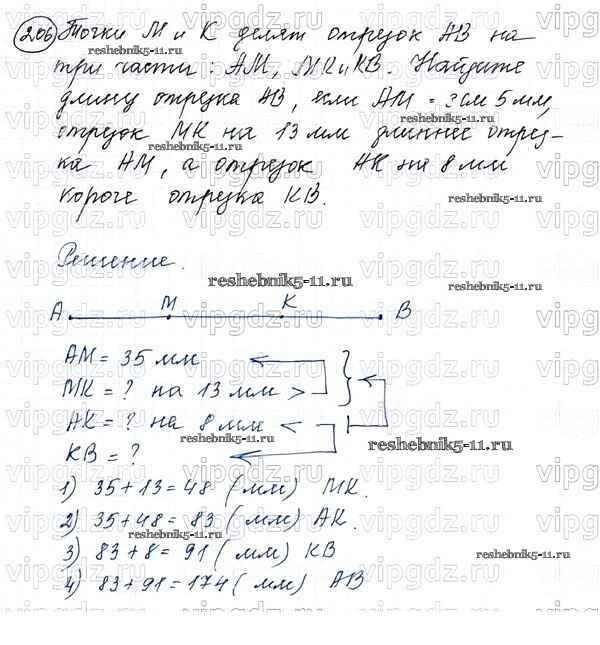 206 Точки М и К делят отрезок АВ на
три части: АМ, МК и КВ. Найдите
длину отрезка АВ, если АМ = 3см 5мм,
отрезок МК на 13 мм длиннее отрез-
ка АМ, а отрезок АК на 8 мм
короче отрезка КВ.
Решение.
А М К В
АМ = 35 мм
МК = ? на 13 мм >
АК = ? на 8 мм <
КВ = ?
1) 35+13=48 (мм) МК.
2) 35+48= 83 (мм) АК.
3) 83+8=91 (мм) КВ
4) 83+91=174 (мм) АВ
reshebnik5-11.ru
vipgdz.ru